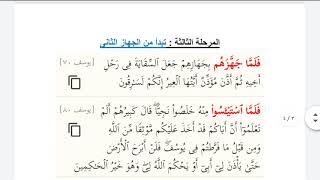 المرحلة الثالثة : تبدأ من الجهاز الثاني
فَلَمَّا جَهَّزَهُم بِجَهَازِهِمْ جَعَلَ ٱلسِّقَايَةَ فِى رَحْلِ [يوسف ٧٠]
أَخِيهِ ثُمَّ أَذَّنَ مُؤَذِّنٌ أَيَّتُهَا ٱلْعِيرُ إِنَّكُمْ لَسَٰرِقُونَ
فَلَمَّا ٱسْتَيْـَٔسُوا۟ مِنْهُ خَلَصُوا۟ نَجِيًّا ۖ قَالَ كَبِيرُهُمْ أَلَمْ [يوسف ٨٠]
تَعْلَمُوٓا۟ أَنَّ أَبَاكُمْ قَدْ أَخَذَ عَلَيْكُم مَّوْثِقًا مِّنَ ٱللَّهِ
وَمِن قَبْلُ مَا فَرَّطتُمْ فِى يُوسُفَ ۖ فَلَنْ أَبْرَحَ ٱلْأَرْضَ
حَتَّىٰ يَأْذَنَ لِىٓ أَبِىٓ أَوْ يَحْكُمَ ٱللَّهُ لِى ۖ وَهُوَ خَيْرُ ٱلْحَٰكِمِينَ